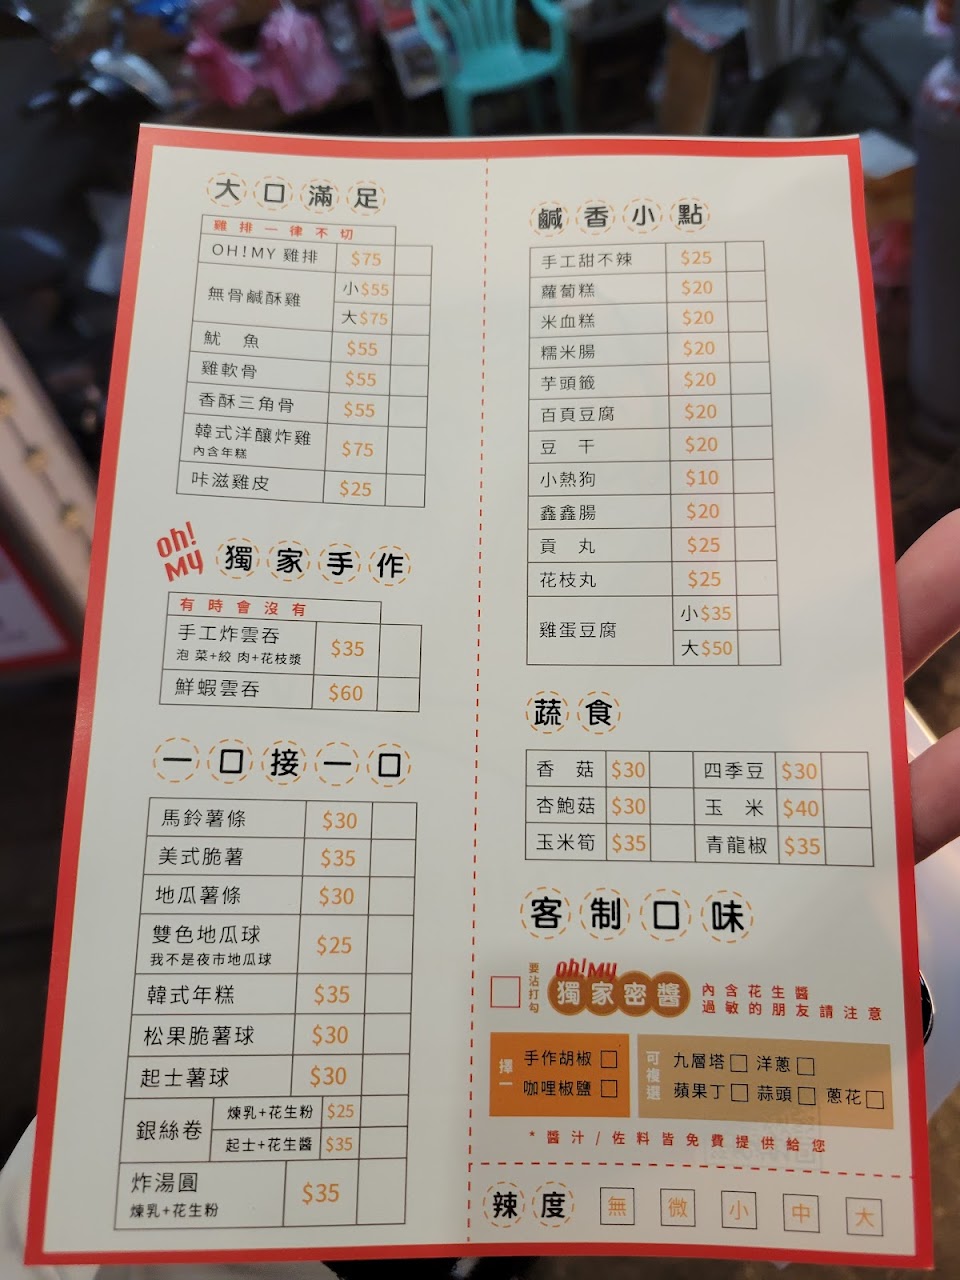 大口滿足
雞排一律不切
OH!MY 雞排 $75
無骨鹹酥雞 小$55
大$75
魷 魚 $55
雞軟骨 $55
香酥三角骨 $55
韓式洋釀炸雞 $75
內含年糕
咔滋雞皮 $25
oh! MY 獨家手作
有時會沒有
手工炸雲吞 $35
泡菜+絞肉+花枝漿
鮮蝦雲吞 $60
一口接一口
馬鈴薯條 $30
美式脆薯 $35
地瓜薯條 $30
雙色地瓜球 $25
我不是夜市地瓜球
韓式年糕 $35
松果脆薯球 $30
起士薯球 $30
銀絲卷 煉乳+花生粉 $25
起士+花生醬 $35
炸湯圓 $35
煉乳+花生粉
鹹香小點
手工甜不辣 $25
蘿蔔糕 $20
米血糕 $20
糯米腸 $20
芋頭籤 $20
百頁豆腐 $20
豆 干 $20
小熱狗 $10
鑫鑫腸 $20
貢 丸 $25
花枝丸 $25
雞蛋豆腐 小$35
大$50
蔬食
香 菇 $30 四季豆 $30
杏鮑菇 $30 玉 米 $40
玉米筍 $35 青龍椒 $35
客制口味
要沾打勾
oh!MY
獨家密醬
內含花生醬
過敏的朋友請注意
擇一
手作胡椒
咖哩椒鹽
可複選
九層塔 洋蔥
蘋果丁 蒜頭 蔥花
*醬汁/佐料皆免費提供給您
辣度 無 微 小 中 大